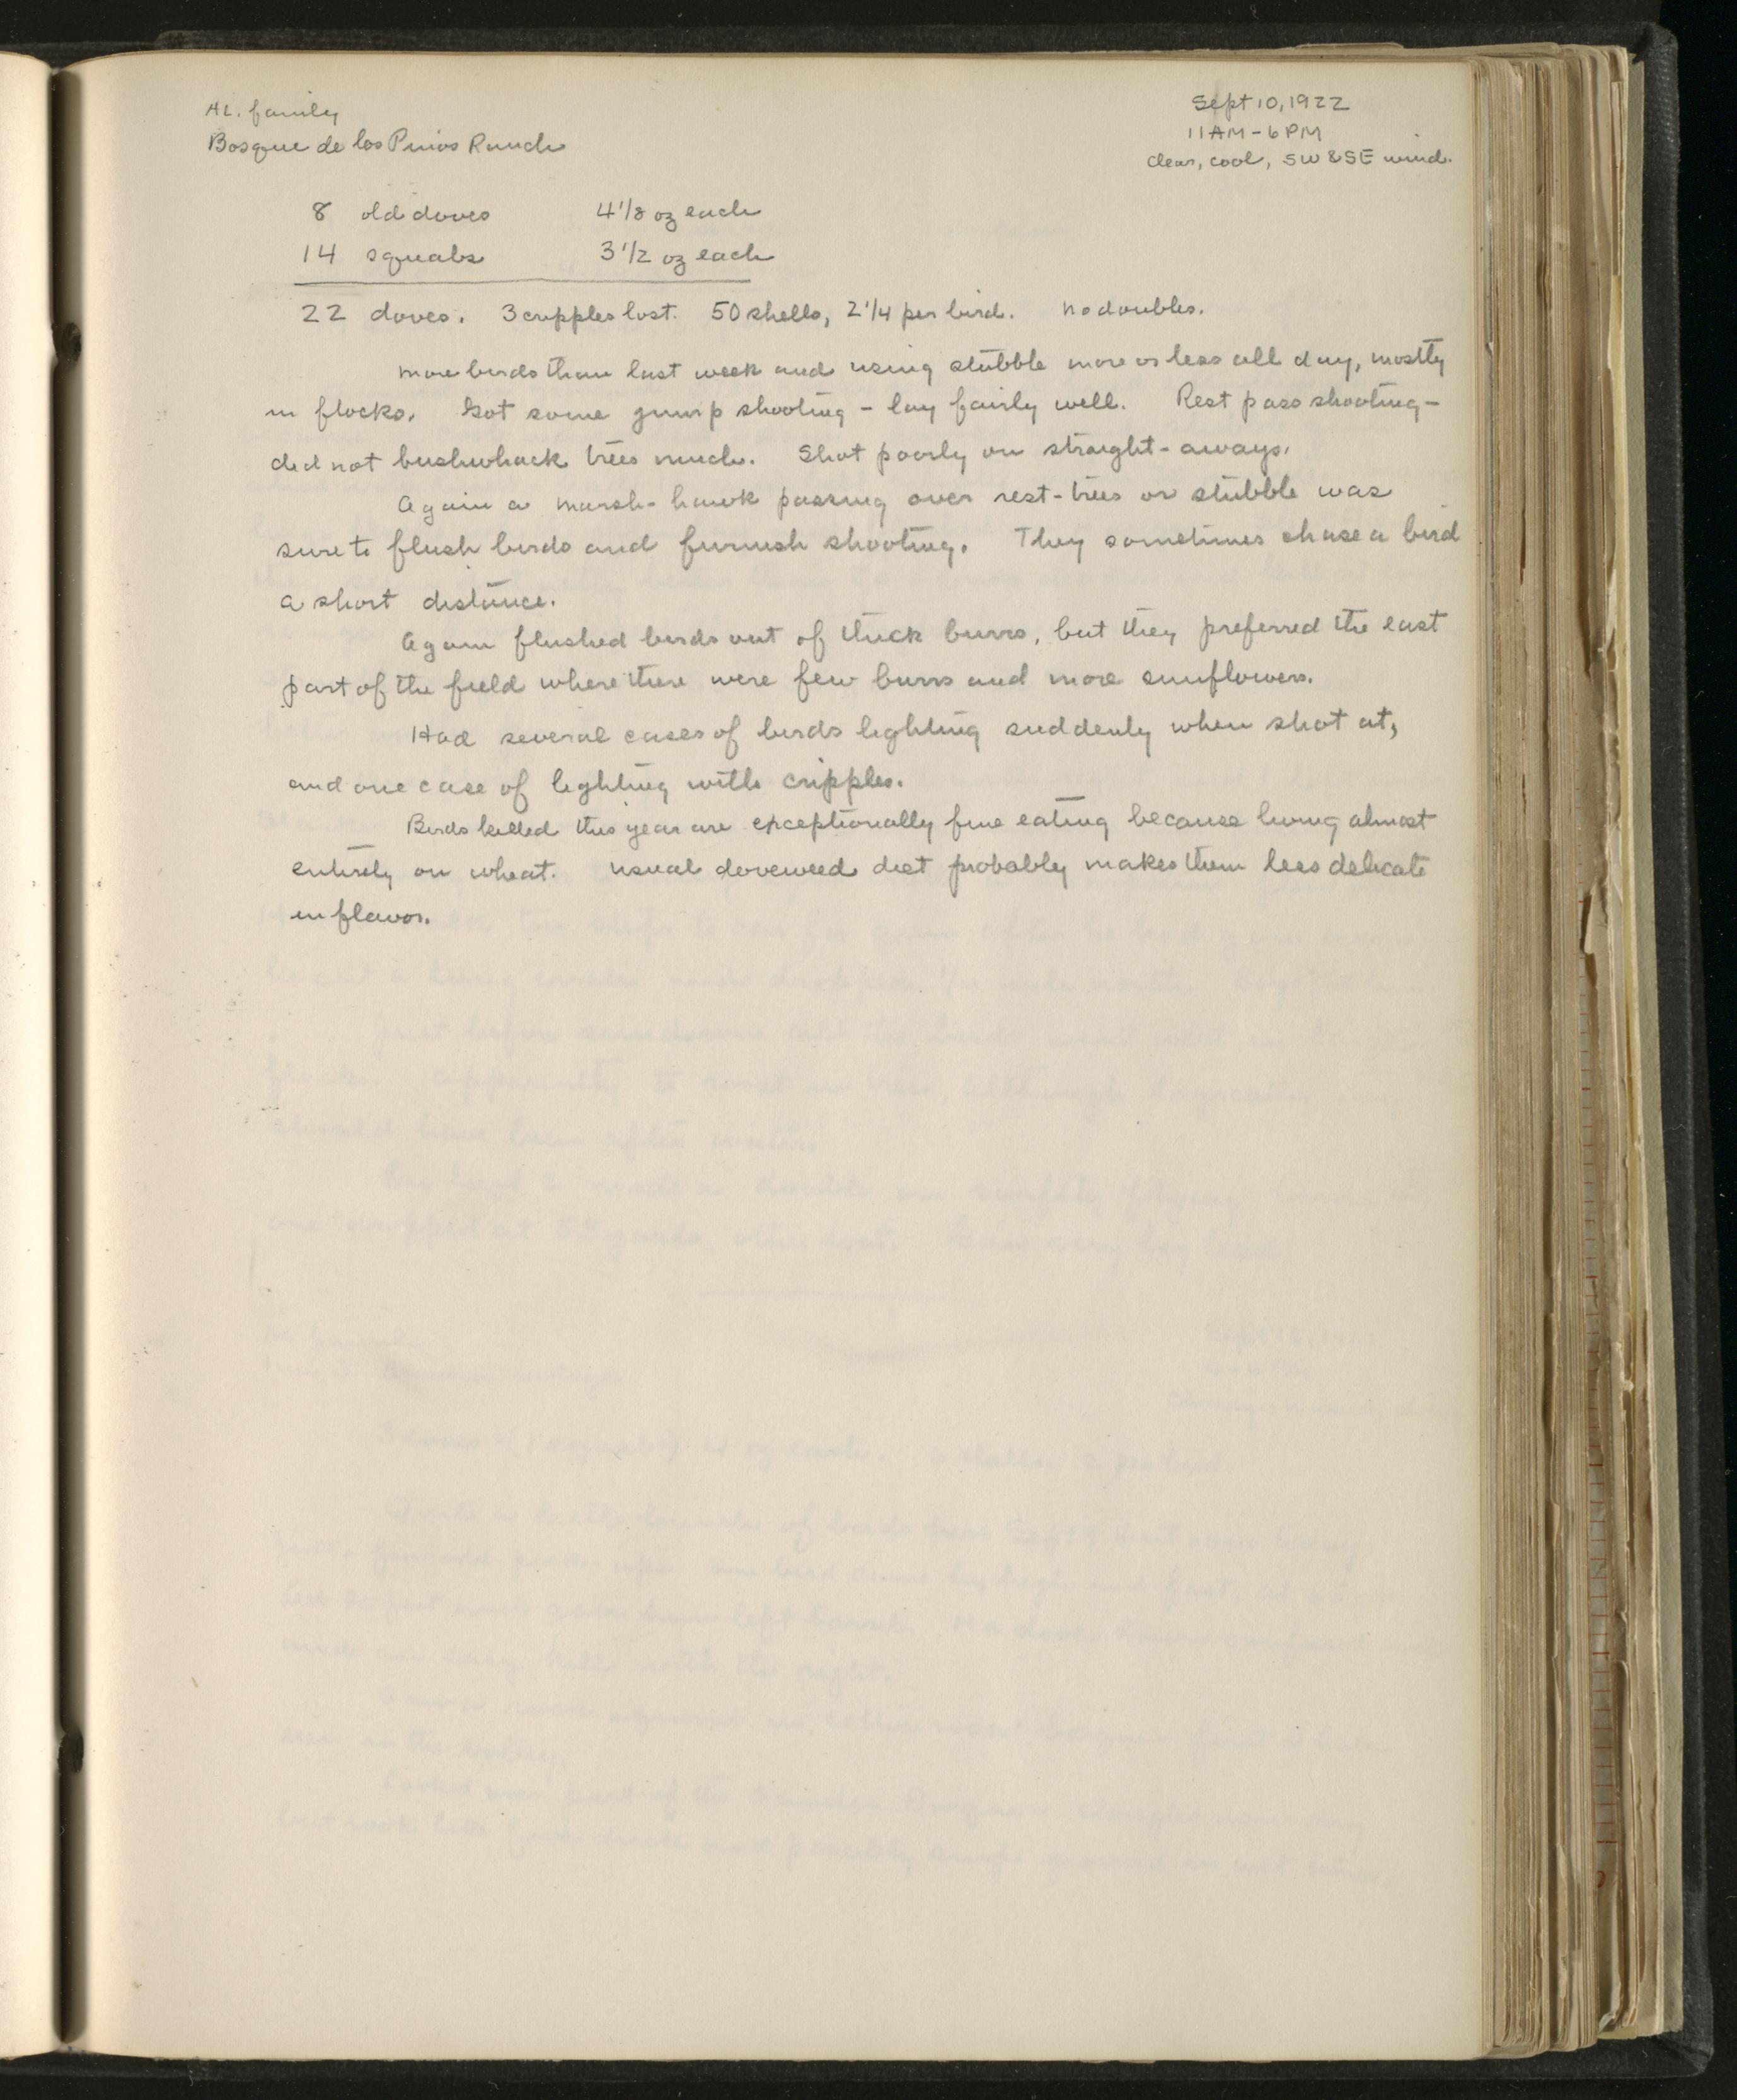 AL. family
Bosque de los Pinos Ranch
Sept 10, 1922
11 AM - 6 PM
clear, cool, SW & SE wind.
8 old doves 4 1/8 oz each
14 squabs 3 1/2 oz each
22 doves. 3 cripples lost. 50 shells, 2 1/4 per bird. No doubles.
More birds than last week and using stubble more or less all day, mostly
in flocks. Got some jump shooting - lay fairly well. Rest pass shooting -
did not bushwhack trees much. Shot poorly on straight-aways.
Again a marsh-hawk passing over rest-trees or stubble was
sure to flush birds and furnish shooting. They sometimes chase a bird
a short distance.
Again flushed birds out of thick burrs, but they preferred the east
part of the field where there were few burrs and more sunflowers.
Had several cases of birds lighting suddenly when shot at,
and one case of lighting with cripples.
Birds killed this year are exceptionally fine eating because living almost
entirely on wheat. Usual doveweed diet probably makes them less delicate
in flavor.